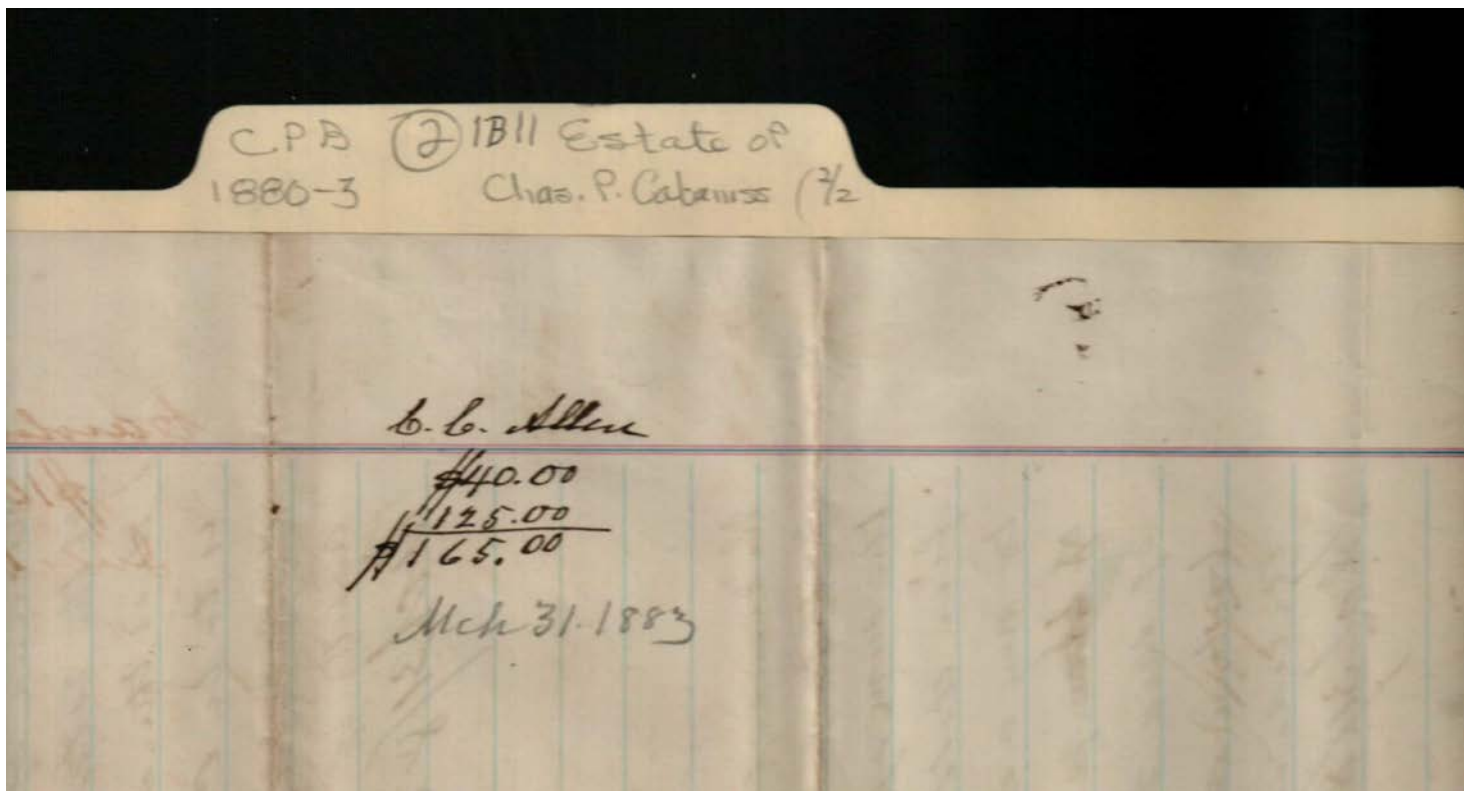 C.P.B ② 1B11 Estate of
1880-3 Chas. P. Cabaniss (2/2
C. C. Allen
$40.00
125.00
$165.00
Mch 31. 1883